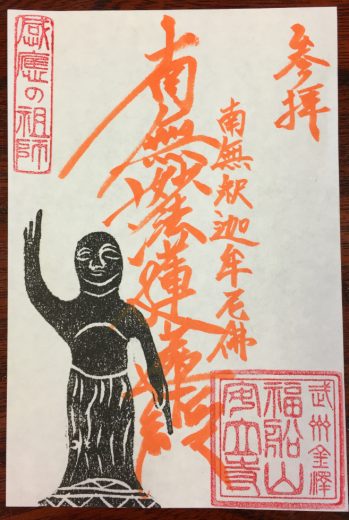 參拝
南無釈迦牟尼佛
南無妙法蓮華経
感應の祖師
武州金澤
福船山
安立寺